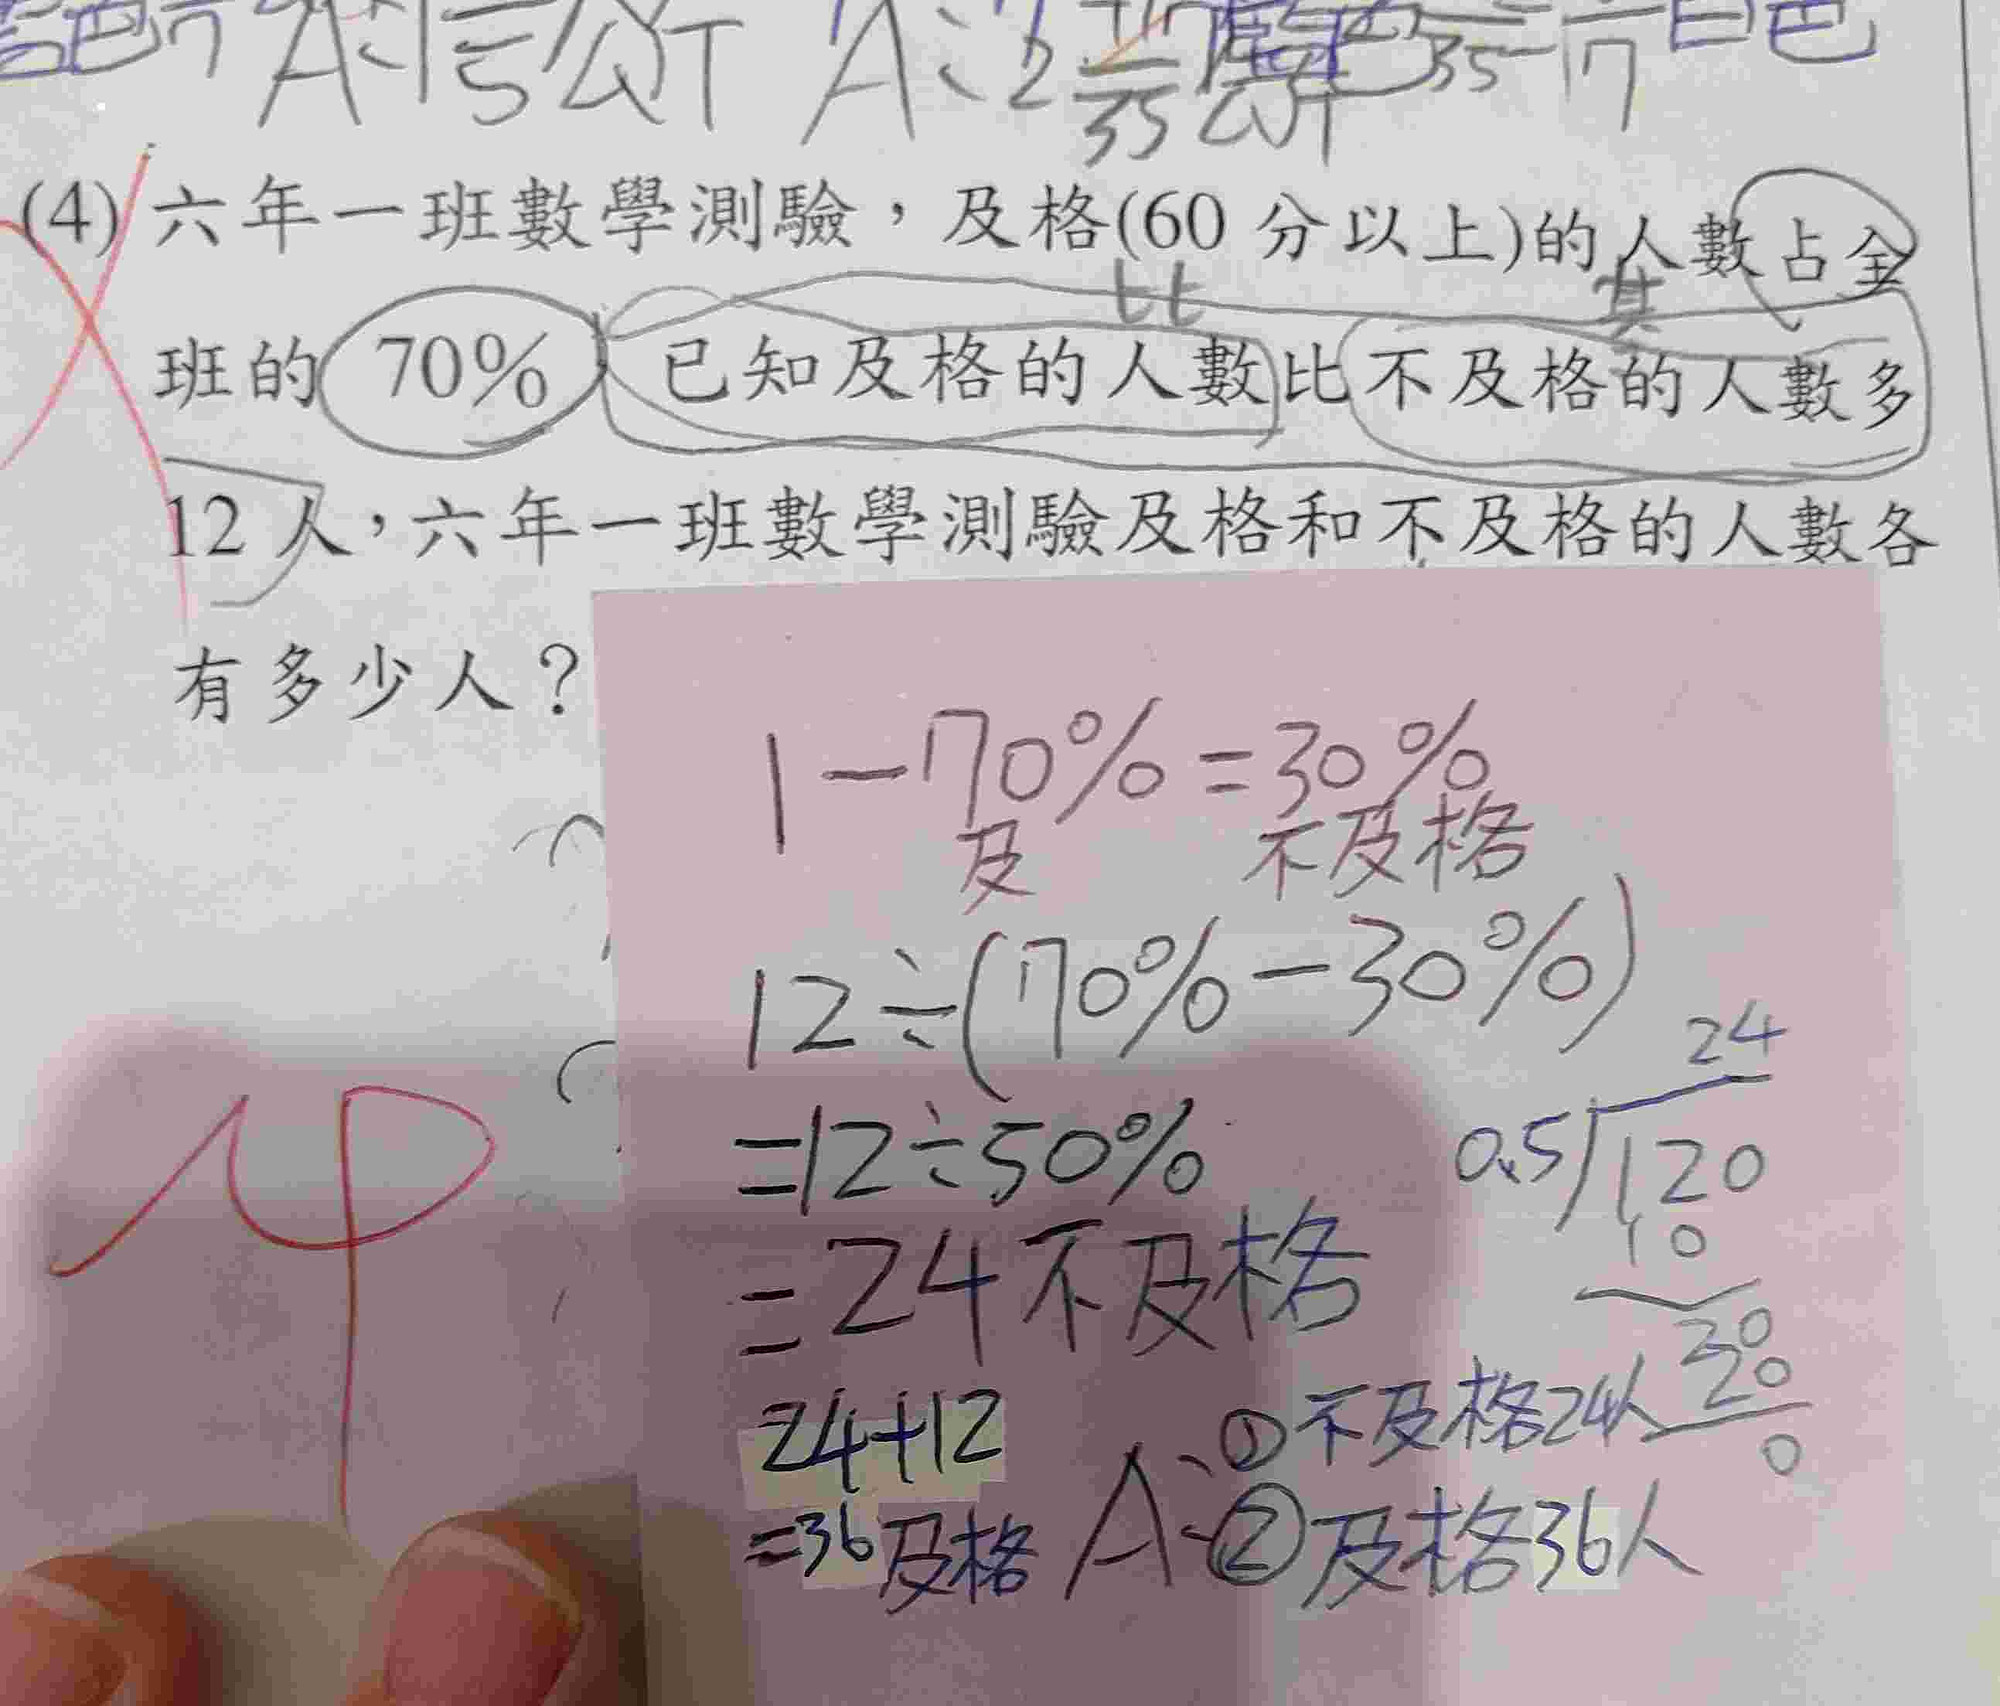 A:1 1/5 公斤 A:2 17/35 公斤
(4) 六年一班數學測驗，及格(60 分以上)的人數占全
班的 70% 已知及格的人數比不及格的人數多
12 人，六年一班數學測驗及格和不及格的人數各
有多少人？
1－70%＝30%
及 不及格
12÷(70%－30%)
=12÷50%
=24不及格
24+12
=36及格
A:①不及格24人
②及格36人
24
0.5 120
10
20
20
0